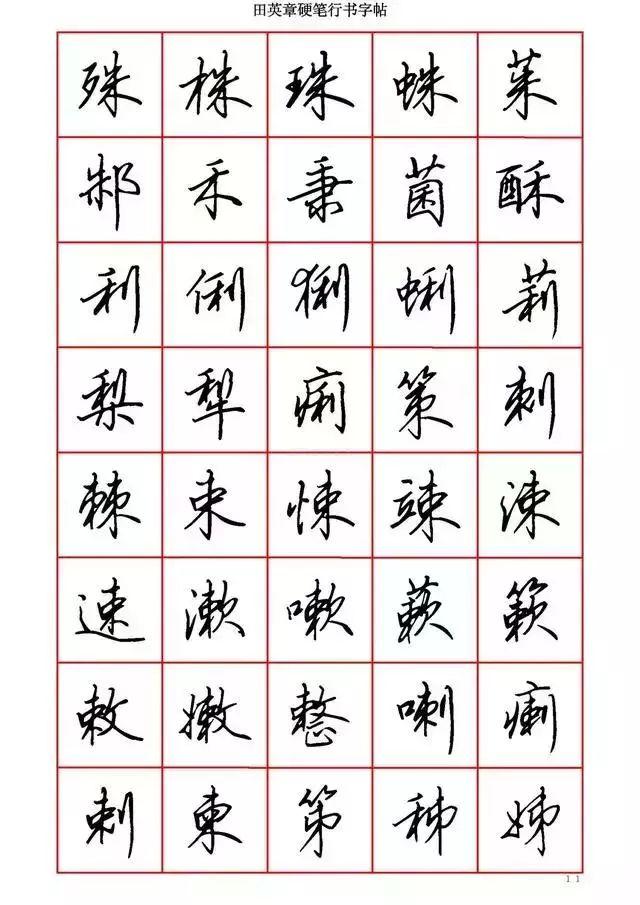 田英章硬笔行书字帖
殊 株 珠 蛛 茱
邾 禾 秉 菌 酥
利 俐 猁 蜊 莉
梨 犁 痢 策 刺
棘 束 悚 竦 涑
速 漱 嗽 蔌 簌
敕 嫩 整 喇 瘌
剌 柬 第 秭 姊
11